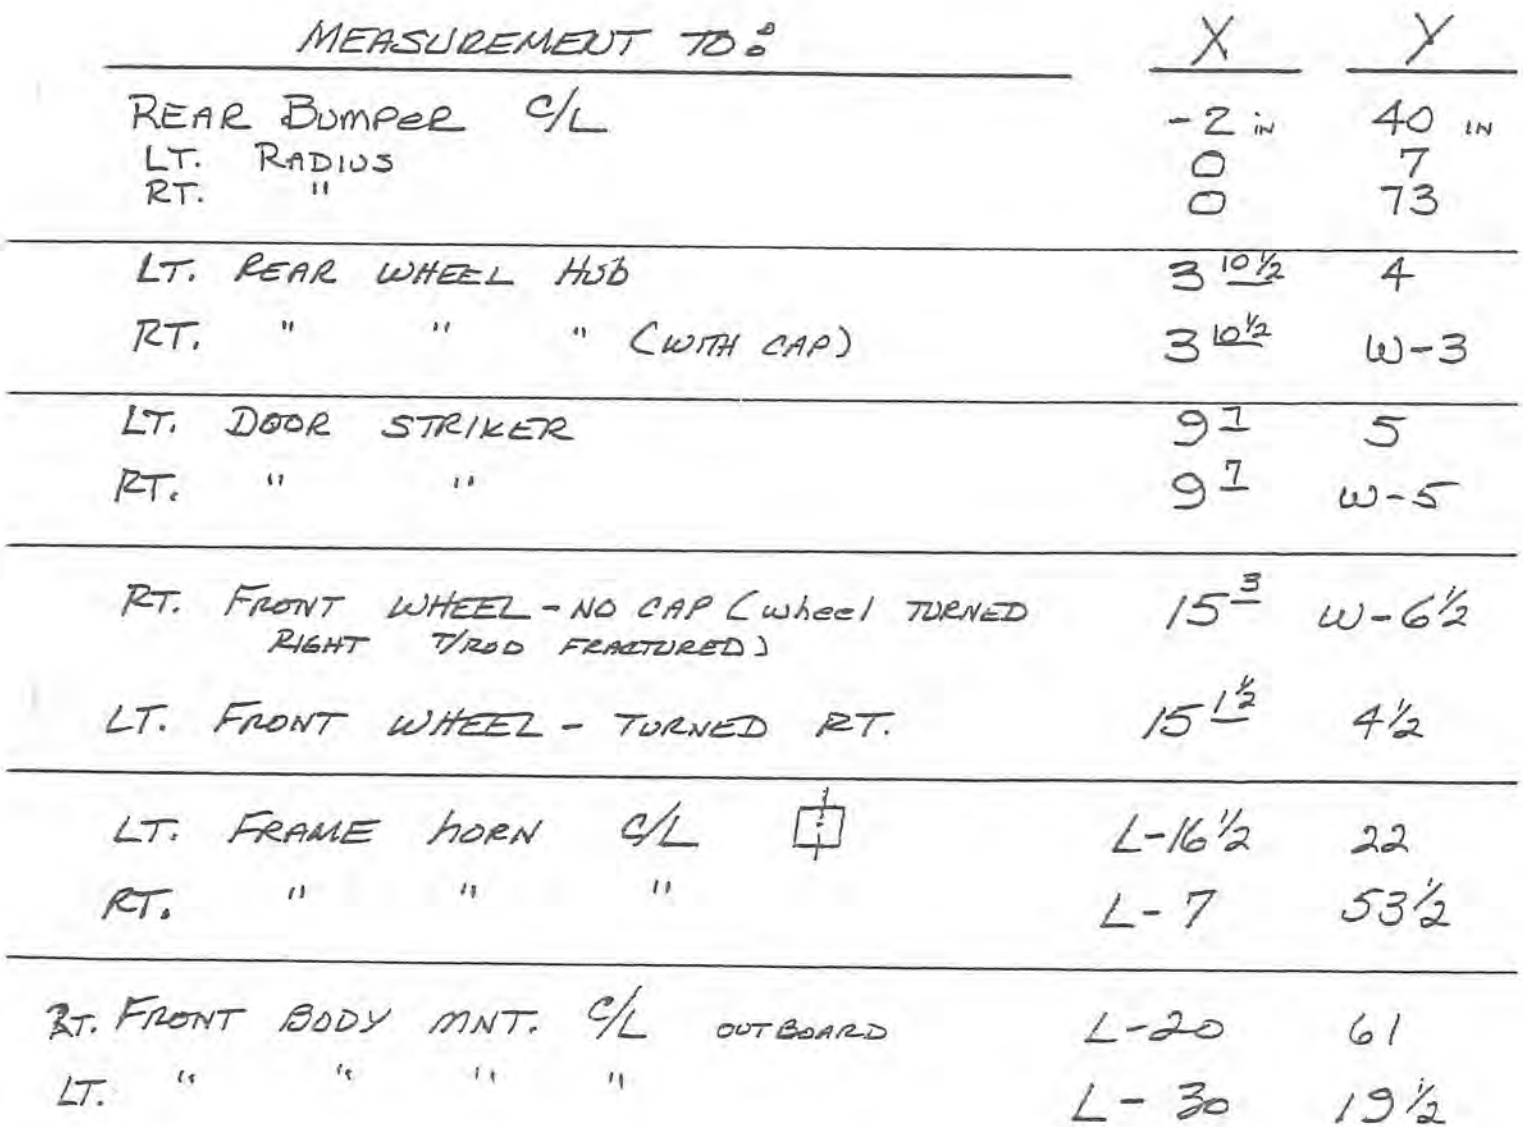 MEASUREMENT TO: X Y
REAR BUMPER C/L -2 IN 40 IN
LT. RADIUS 0 7
RT. " 0 73
LT. REAR WHEEL HUB 3 10 1/2 4
RT. " " " (WITH CAP) 3 10 1/2 W-3
LT. DOOR STRIKER 9 7 5
RT. " " 9 7 W-5
RT. FRONT WHEEL - NO CAP (wheel TURNED 15 3 W-6 1/2
RIGHT T/ROD FRACTURED)
LT. FRONT WHEEL - TURNED RT. 15 1 1/2 4 1/2
LT. FRAME HORN C/L L-16 1/2 22
RT. " " " L-7 53 1/2
RT. FRONT BODY MNT. C/L OUTBOARD L-20 61
LT. " " " " L-30 19 1/2